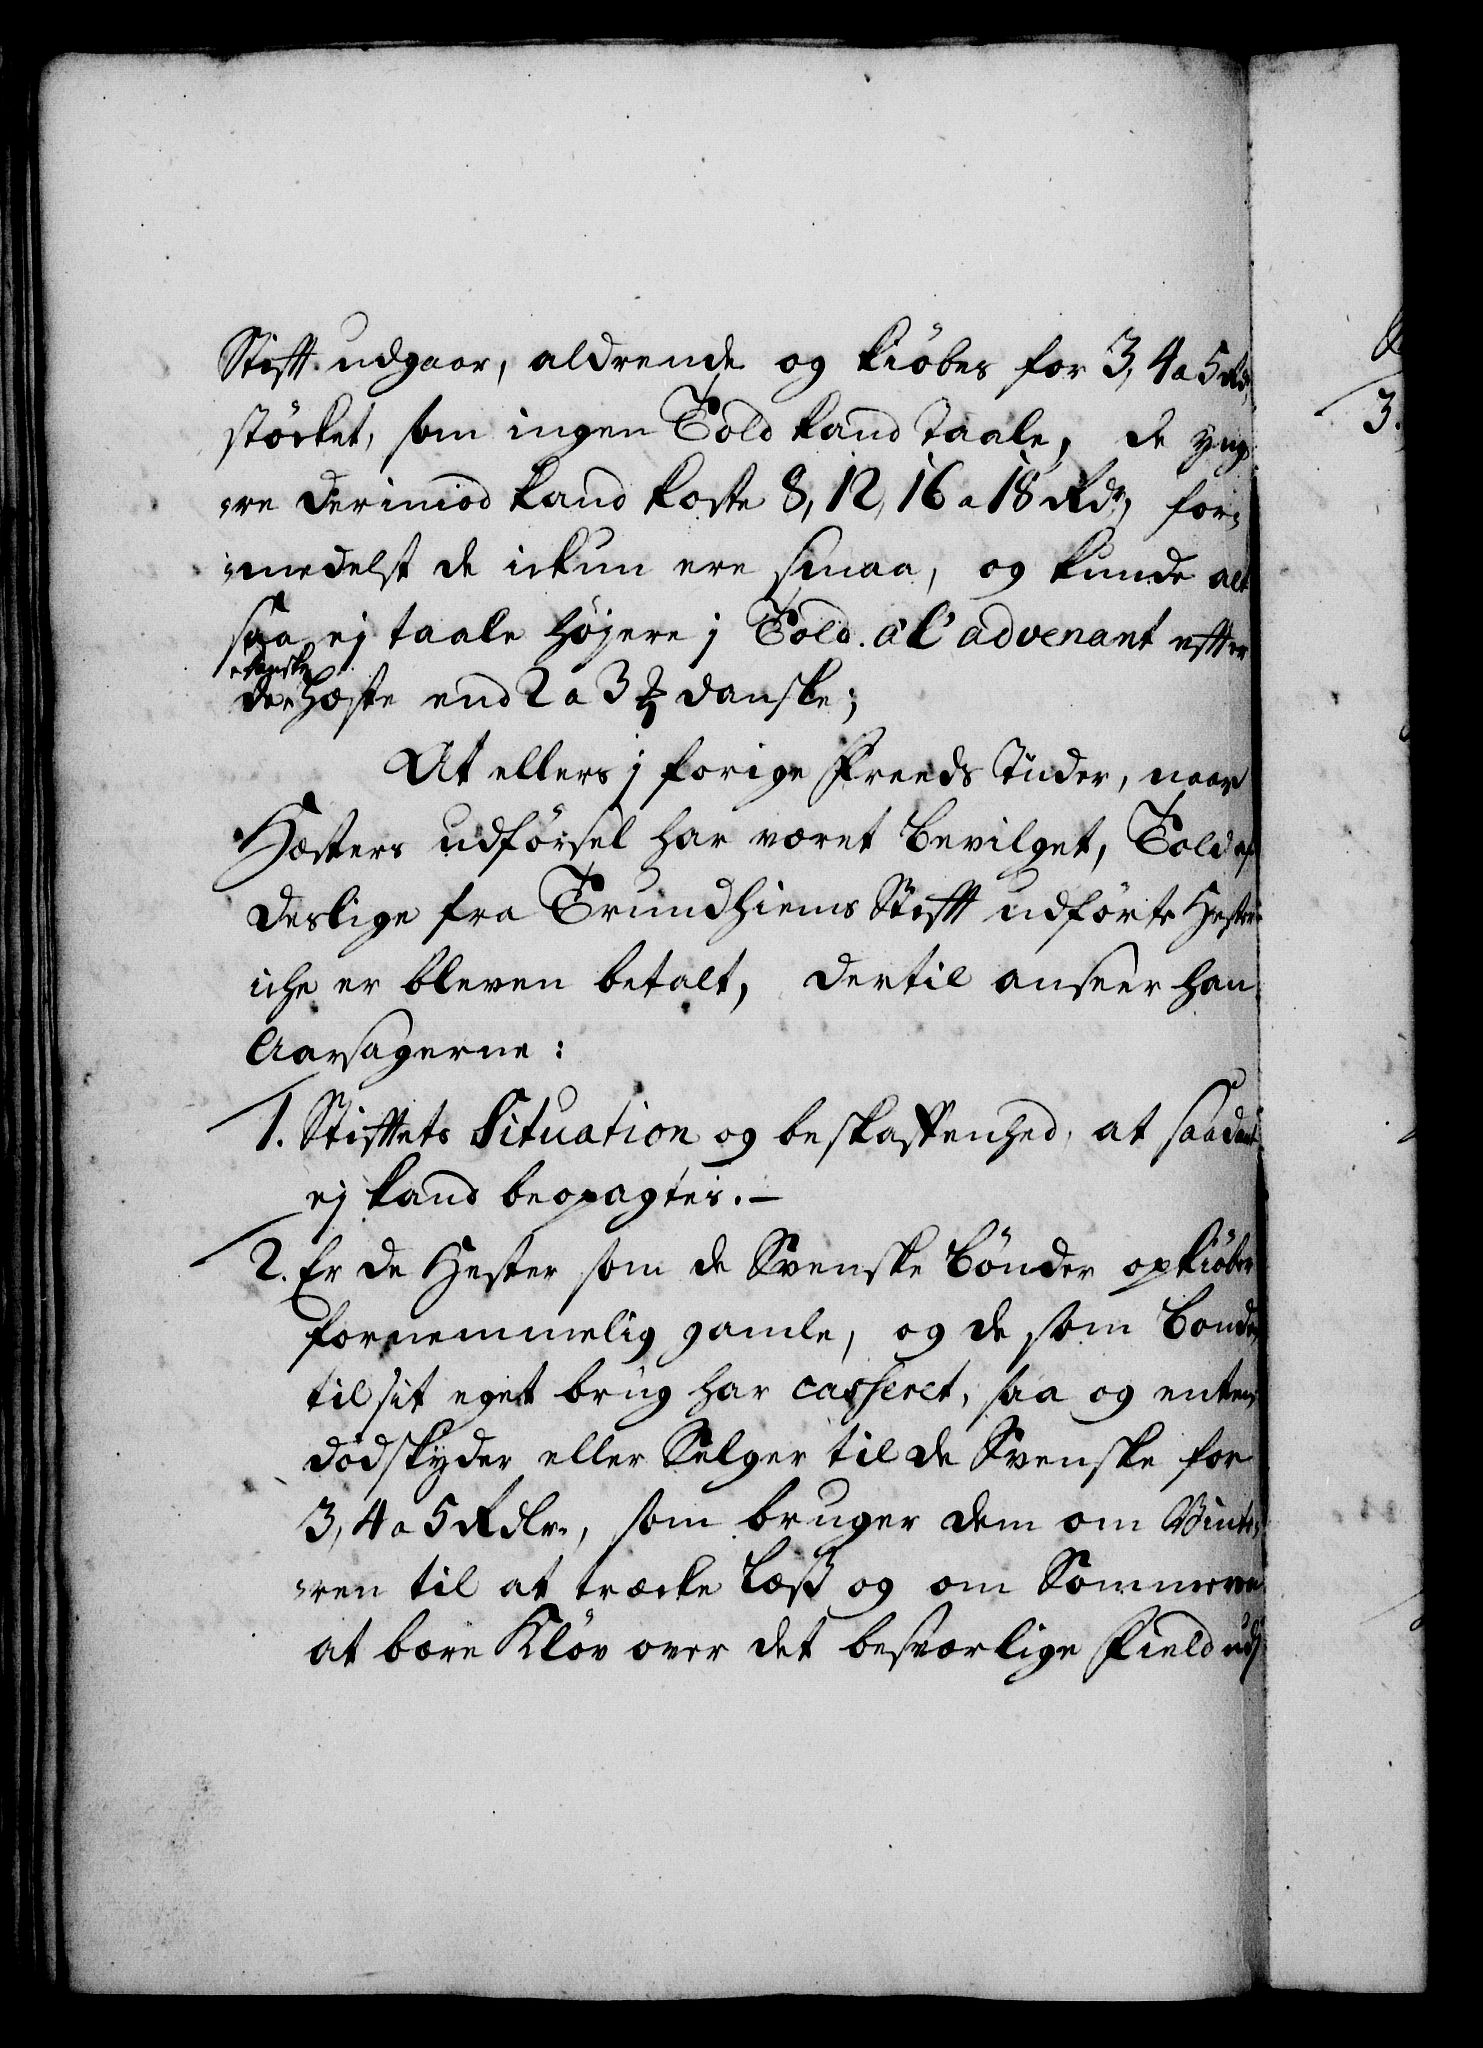 Stift udgaar, aldrende og kiöbes for 3, 4 a 5 Rdr
störket, som ingen Told kand taale, de yng
:re derimod kand koste 8, 12, 16 a 18 Rdr, for:
:medelst de ickun ere smaa, og kunde alt
saa ej taale höjere j Told. a l'advenant effter
danske
de Hæste end 2 a 3 ⅔ danske;
At ellers j forige Freeds Tiider, naar
Hesters udförsel har været bevilget, Told af
deslige fra Trundhiems Stifft udförte Hester
iche er bleven betalt, dertil anseer han
Aarsagerne:
1. Stifftets Situation og beskaffenhed, at saadant
ej kand beopagtes. –
2. Er de Hester som de Svenske bönder opkiöber
fornemmelig gamle, og de som bonden
til sit eget brug har casseret, saa og enten
dödskyder eller Selger til de Svenske for
3, 4 a 5 Rdlr., som bruger dem om Vinte:
:ren til at træcke Læss og om Sommeren
at bære Klöv over det besværlige Field udj
3.